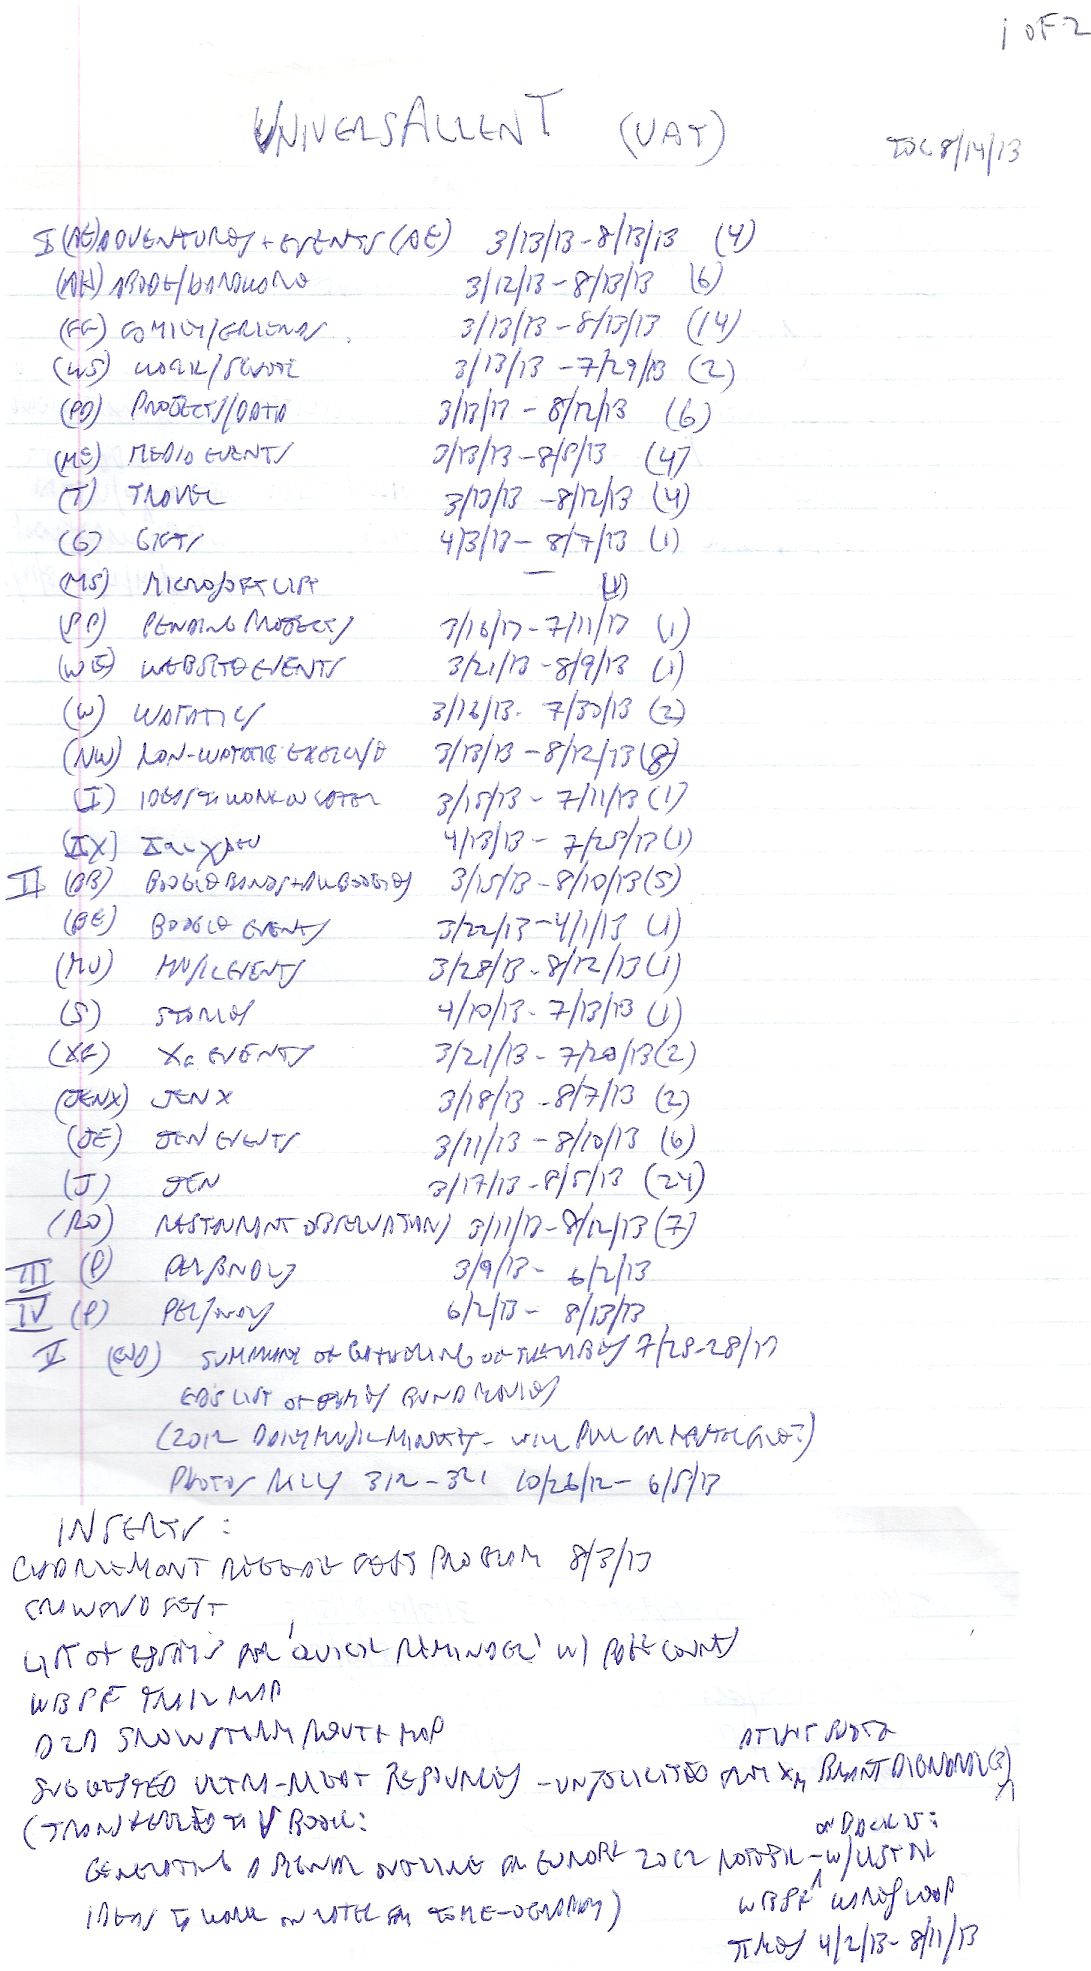 1 OF 2
UNIVERSALLENT (VAT)
TOC 8/14/13
I (AE) ADVENTURES + EVENTS (AE) 3/13/13 - 8/13/13 (4)
(AH) ABODE/HARDWARE 3/12/13 - 8/13/13 (6)
(FF) FAMILY/FRIENDS 3/13/13 - 8/13/13 (14)
(WS) WORK/SCHOOL 3/13/13 - 7/29/13 (2)
(PD) PROJECTS/DATA 3/13/13 - 8/12/13 (6)
(ME) MEDIA EVENTS 3/13/13 - 8/8/13 (4)
(T) TRAVEL 3/13/13 - 8/12/13 (4)
(G) GIFTS 4/3/13 - 8/7/13 (1)
(MS) MICROSOFT LIST - (1)
(PP) PENDING PROJECTS 3/16/13 - 7/11/13 (1)
(WE) WEBSITE EVENTS 3/21/13 - 8/9/13 (1)
(W) WATATIC 3/16/13 - 7/30/13 (2)
(NW) NON-WATATIC EXERCISE 3/13/13 - 8/12/13 (8)
(I) IDEAS TO WORK ON LATER 3/15/13 - 7/11/13 (1)
(IX) 4/13/13 - 7/25/13 (1)
II (BB) BOOGIE BANDS + 3/15/13 - 8/10/13 (5)
(BE) BOOGIE EVENTS 3/22/13 - 4/1/13 (1)
(MU) MUSIC EVENTS 3/28/13 - 8/12/13 (1)
(S) STORIES 4/10/13 - 7/13/13 (1)
(XE) X EVENTS 3/21/13 - 7/20/13 (2)
(JENX) JEN X 3/18/13 - 8/7/13 (2)
(JE) JEN EVENTS 3/11/13 - 8/10/13 (6)
(J) JEN 3/17/13 - 8/5/13 (24)
(RO) RESTAURANT OBSERVATIONS 3/11/13 - 8/12/13 (7)
III (P) PERSONALS 3/9/13 - 6/2/13
IV (P) PERSONALS 6/2/13 - 8/13/13
V (END) SUMMARY OF GATHERING OF THE VIBES 7/25-28/13
ED'S LIST OF
(2012 DAILY MUSIC - WILL PULL FOR MASTER FILE?)
PHOTOS 312 - 321 10/26/12 - 6/5/13
INSERTS:
CHARLEMONT REGGAE FEST PROGRAM 8/3/13
FEST
LIST OF FOR 'QUICK REMINDER' W/ PAGE COUNTS
WBSF TRAIL MAP
SNOWSTORM ROUTE MAP
SUGGESTED ULTRA-MEGA RESPONSES - UNSOLICITED
(TRANSFERRED TO V BOOK:
GENERATING A OUTLINE FOR EUROPE 2012
IDEAS TO WORK ON LATER FOR
ON BACK IS:
W/ LIST
WBSF LOOP
TIMES 4/2/13 - 8/11/13